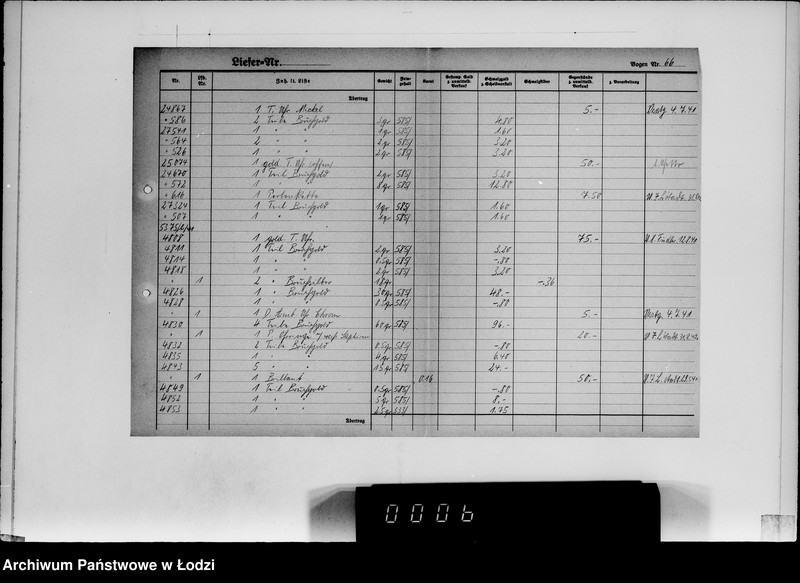 Liefer-Nr.
Bogen Nr. 66
Nr. Lfd. Nr. Inh. lt. Liste Gewicht Feingehalt Karat Gestemp. Gold z. unmittelb. Verkauf Schmelzgold z. Scheideanstalt Schmelzsilber Gegenstände z. unmittelb. Verkauf z. Verarbeitung
Übertrag
24867 1 T. Uhr Nickel 5.- 4.7.41
" 586 2 Teile Bruchgold 3gr 585/ 4.80
27541 1 " " 1gr 585/ 1.60
" 564 2 " " 2gr 585/ 3.20
" 526 1 " " 2gr 585/ 3.20
25074 1 gold. T. Uhr 50.-
24670 1 Teil Bruchgold 2gr 585/ 3.20
" 572 1 " " 8gr 585/ 12.80
" 616 1 Perlenkette 7.50
27324 1 Teil Bruchgold 1gr 585/ 1.60
" 507 1 " " 585/ 1.60
4808 1 gold. T. Uhr. 75.-
4811 1 Teil Bruchgold 2gr 585/ 3.20
4814 1 " " 0.5gr 585/ -.80
4818 1 " " 2gr 585/ 3.20
" 1 2 " Bruchsilber 18gr -.36
4826 1 " Bruchgold 30gr 585/ 48.-
4828 1 " " 0.5gr 585/ -.80
" 1 1 D. Armb. Uhr Chrom 5.- 4.7.41
4830 4 Teile Bruchgold 60gr 585/ 96.-
" 1 1 P. Ohrringe 20.-
4832 2 Teile Bruchgold 0.5gr 585/ -.80
4835 1 " " 4gr 585/ 6.40
4843 5 " " 15gr 585/ 24.-
" 1 1 Brillant 0.16 50.-
4849 1 Teil Bruchgold 0.5gr 585/ -.80
4852 1 " " 5gr 585/ 8.-
4853 1 " " 2.5gr 333/ 1.75
Übertrag
0006
Archiwum Państwowe w Łodzi